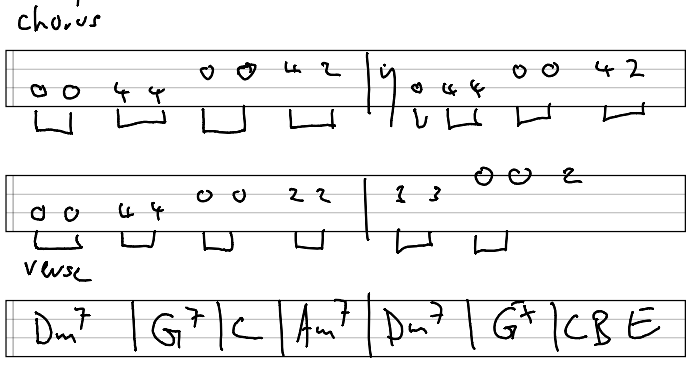 chorus
0 0 4 4 0 0 4 2 | 0 4 4 0 0 4 2
0 0 4 4 0 0 2 2 | 3 3 0 0 2
verse
Dm7 | G7 | C | Am7 | Dm7 | G7 | C B E